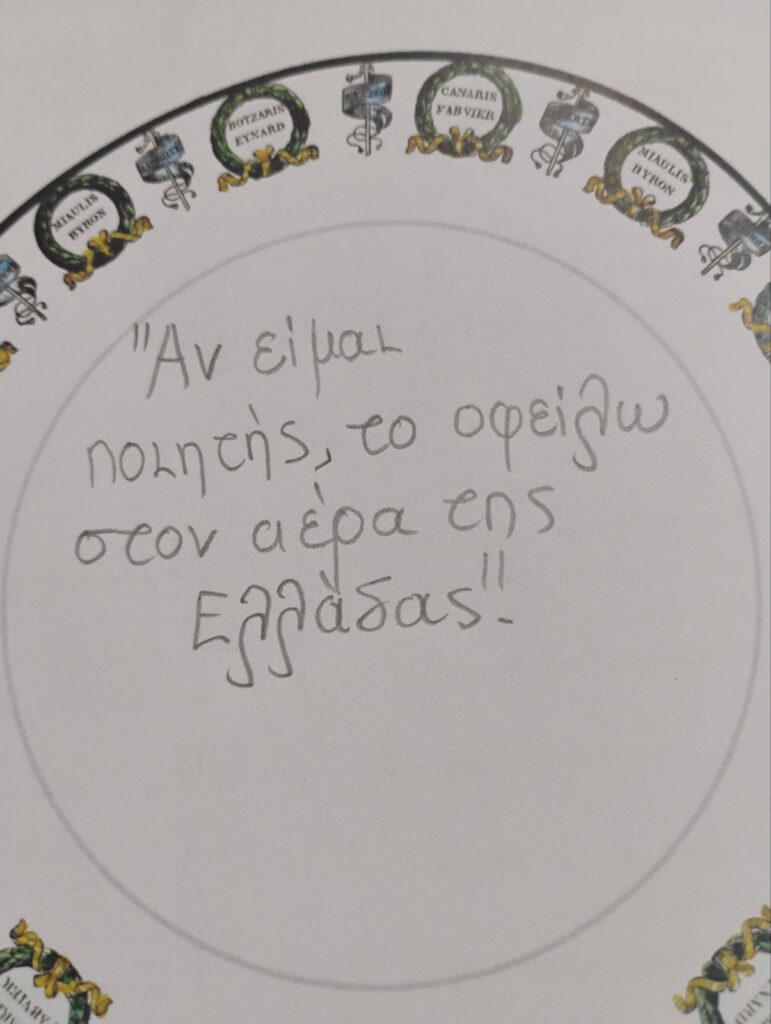 BOTZARIS
EYNARD
CANARIS
FABVIER
MIAULIS
BYRON
MIAULIS
BYRON
"Αν είμαι
ποιητής, το οφείλω
στον αέρα της
Ελλάδας".